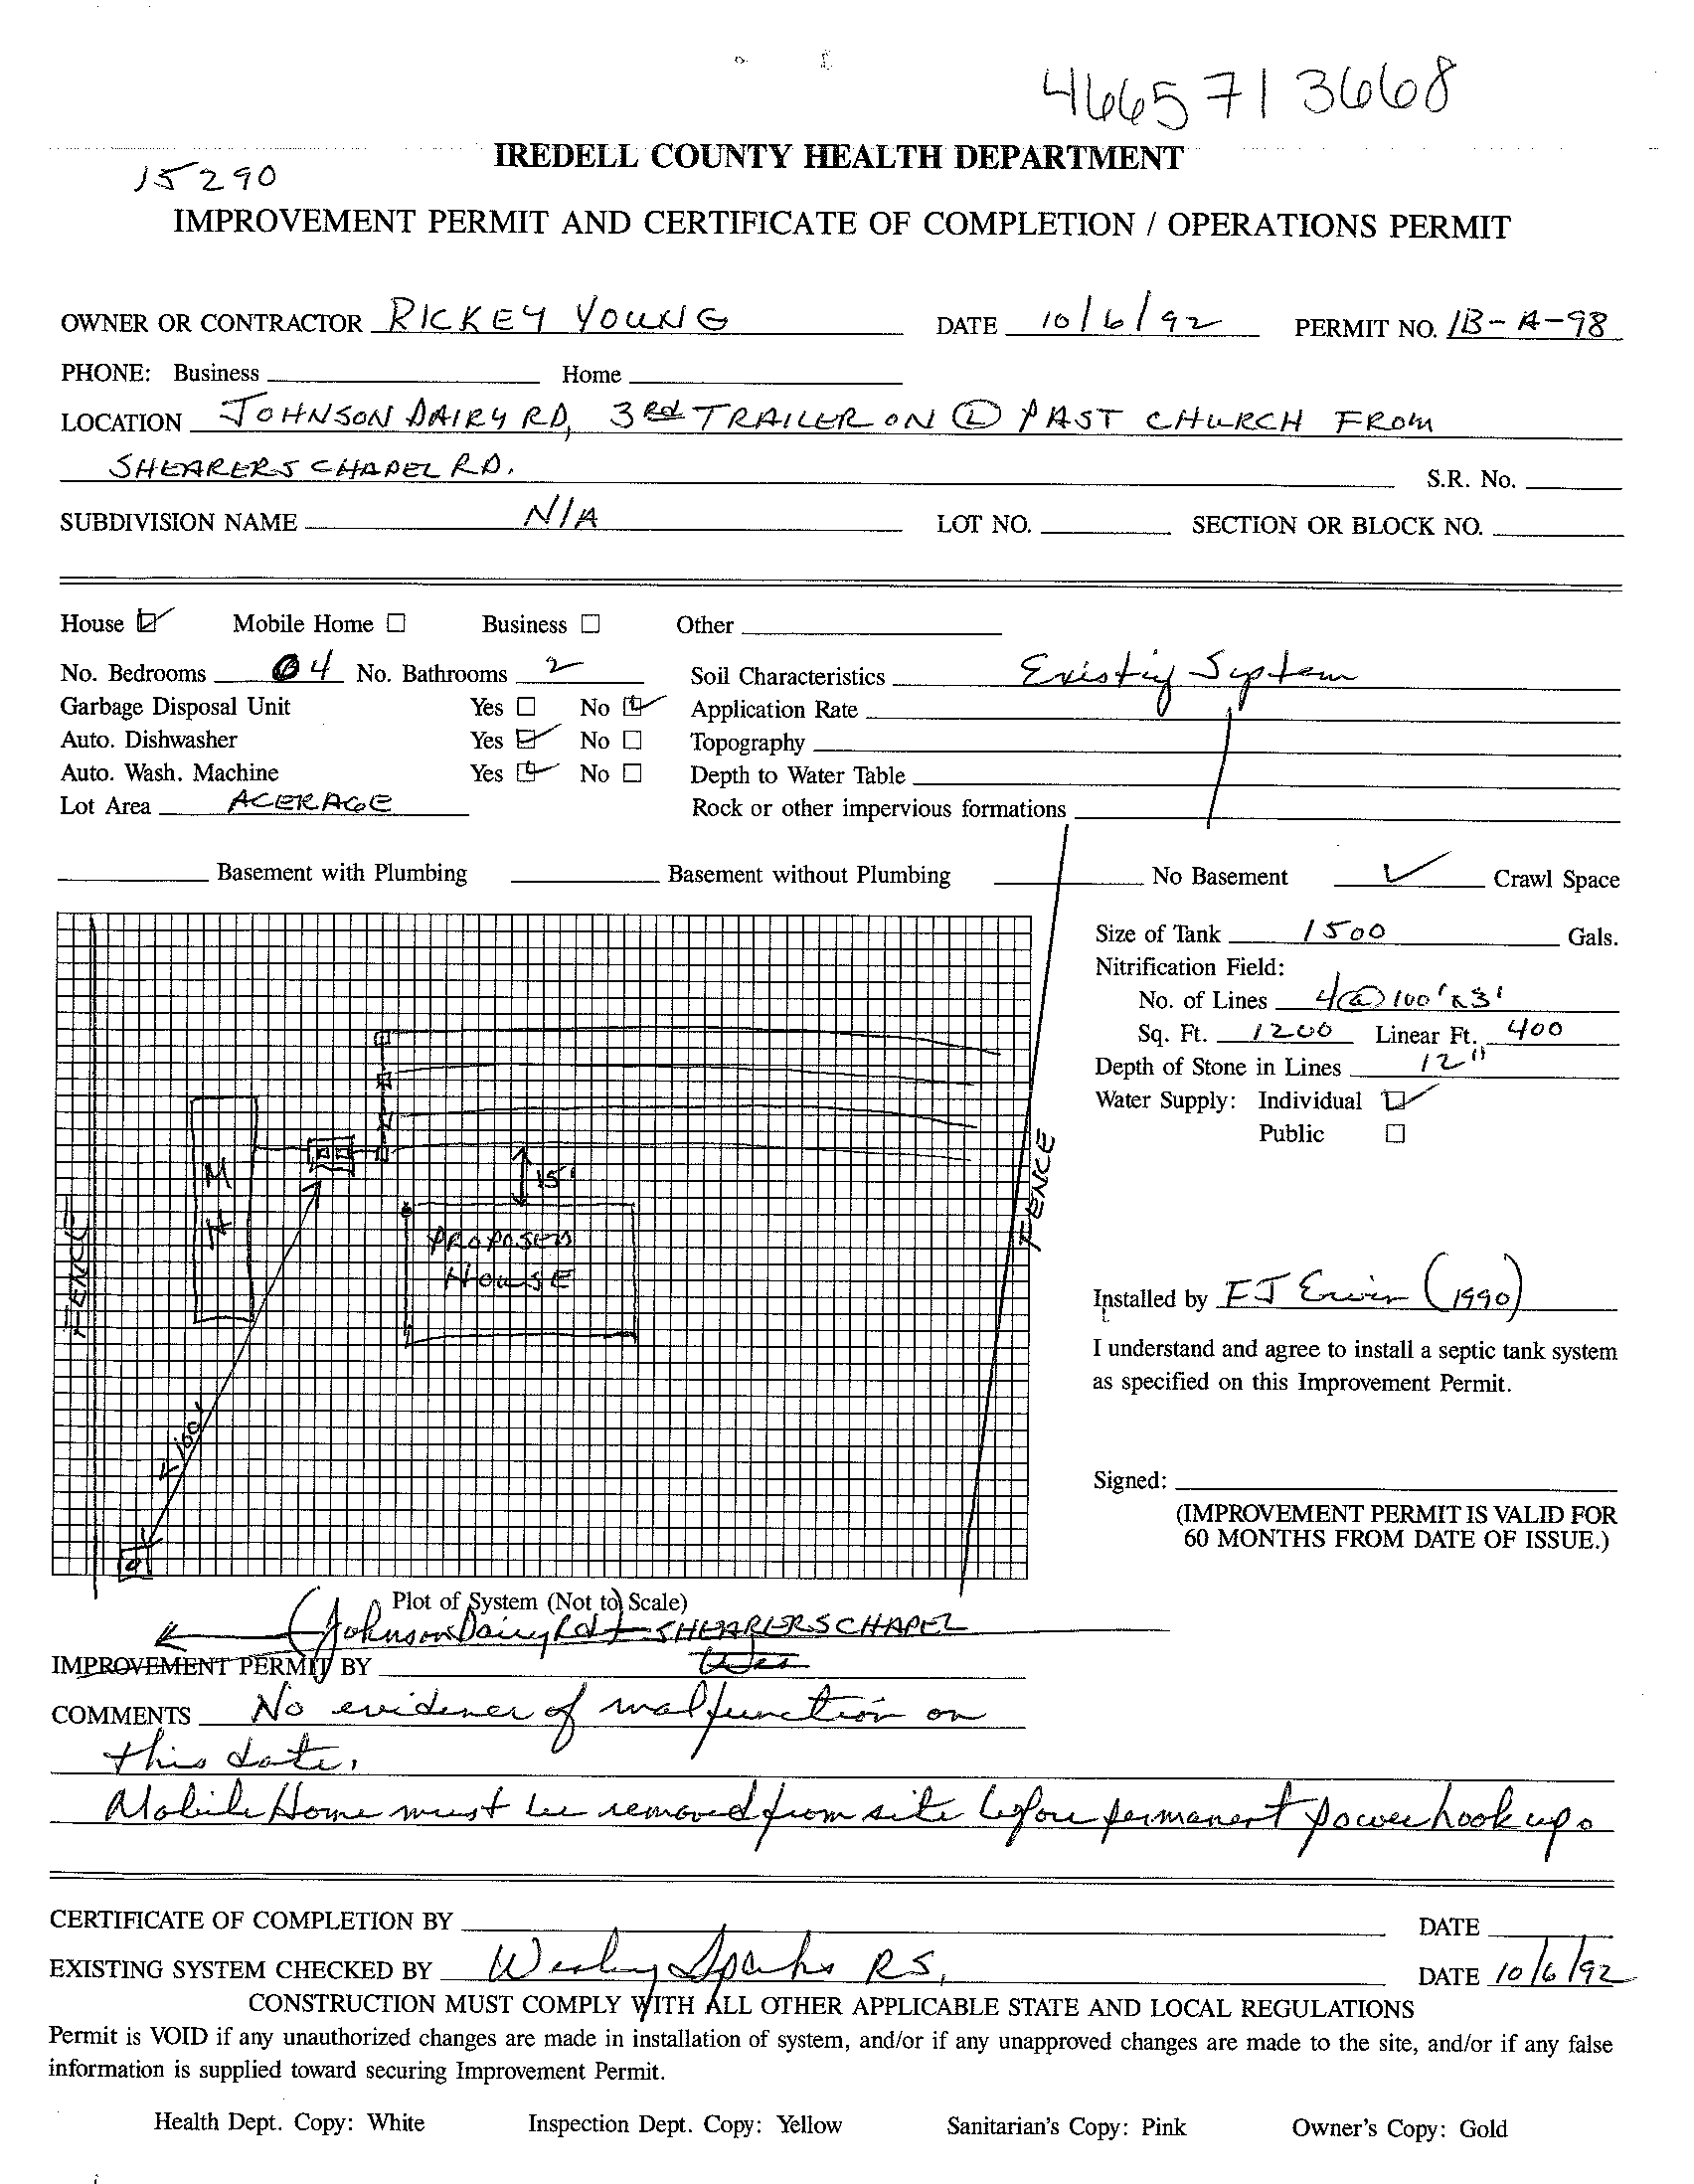 4665713668
IREDELL COUNTY HEALTH DEPARTMENT
15290
IMPROVEMENT PERMIT AND CERTIFICATE OF COMPLETION / OPERATIONS PERMIT
OWNER OR CONTRACTOR RICKEY YOUNG DATE 10/6/92 PERMIT NO. 1B-A-98
PHONE: Business Home
LOCATION JOHNSON DAIRY RD, 3RD TRAILER ON Ⓛ PAST CHURCH FROM
SHEARERS CHAPEL RD. S.R. No.
SUBDIVISION NAME N/A LOT NO. SECTION OR BLOCK NO.
House Mobile Home Business Other
No. Bedrooms 4 No. Bathrooms 2 Soil Characteristics Existing System
Garbage Disposal Unit Yes No Application Rate
Auto. Dishwasher Yes No Topography
Auto. Wash. Machine Yes No Depth to Water Table
Lot Area ACERAGE Rock or other impervious formations
Basement with Plumbing Basement without Plumbing No Basement Crawl Space
Size of Tank 1500 Gals.
Nitrification Field:
No. of Lines 4@100'x3'
Sq. Ft. 1200 Linear Ft. 400
Depth of Stone in Lines 12"
Water Supply: Individual
Public
15'
MH
PROPOSED
HOUSE
FENCE
FENCE
100'
Installed by FJ Erwin (1990)
I understand and agree to install a septic tank system
as specified on this Improvement Permit.
Signed:
(IMPROVEMENT PERMIT IS VALID FOR
60 MONTHS FROM DATE OF ISSUE.)
Plot of System (Not to Scale)
(Johnson Dairy Rd) SHEARERS CHAPEL
IMPROVEMENT PERMIT BY
COMMENTS No evidence of malfunction on
this date.
Mobile Home must be removed from site before permanent power hook up.
CERTIFICATE OF COMPLETION BY DATE
EXISTING SYSTEM CHECKED BY Wesley Sparks RS, DATE 10/6/92
CONSTRUCTION MUST COMPLY WITH ALL OTHER APPLICABLE STATE AND LOCAL REGULATIONS
Permit is VOID if any unauthorized changes are made in installation of system, and/or if any unapproved changes are made to the site, and/or if any false
information is supplied toward securing Improvement Permit.
Health Dept. Copy: White Inspection Dept. Copy: Yellow Sanitarian's Copy: Pink Owner's Copy: Gold